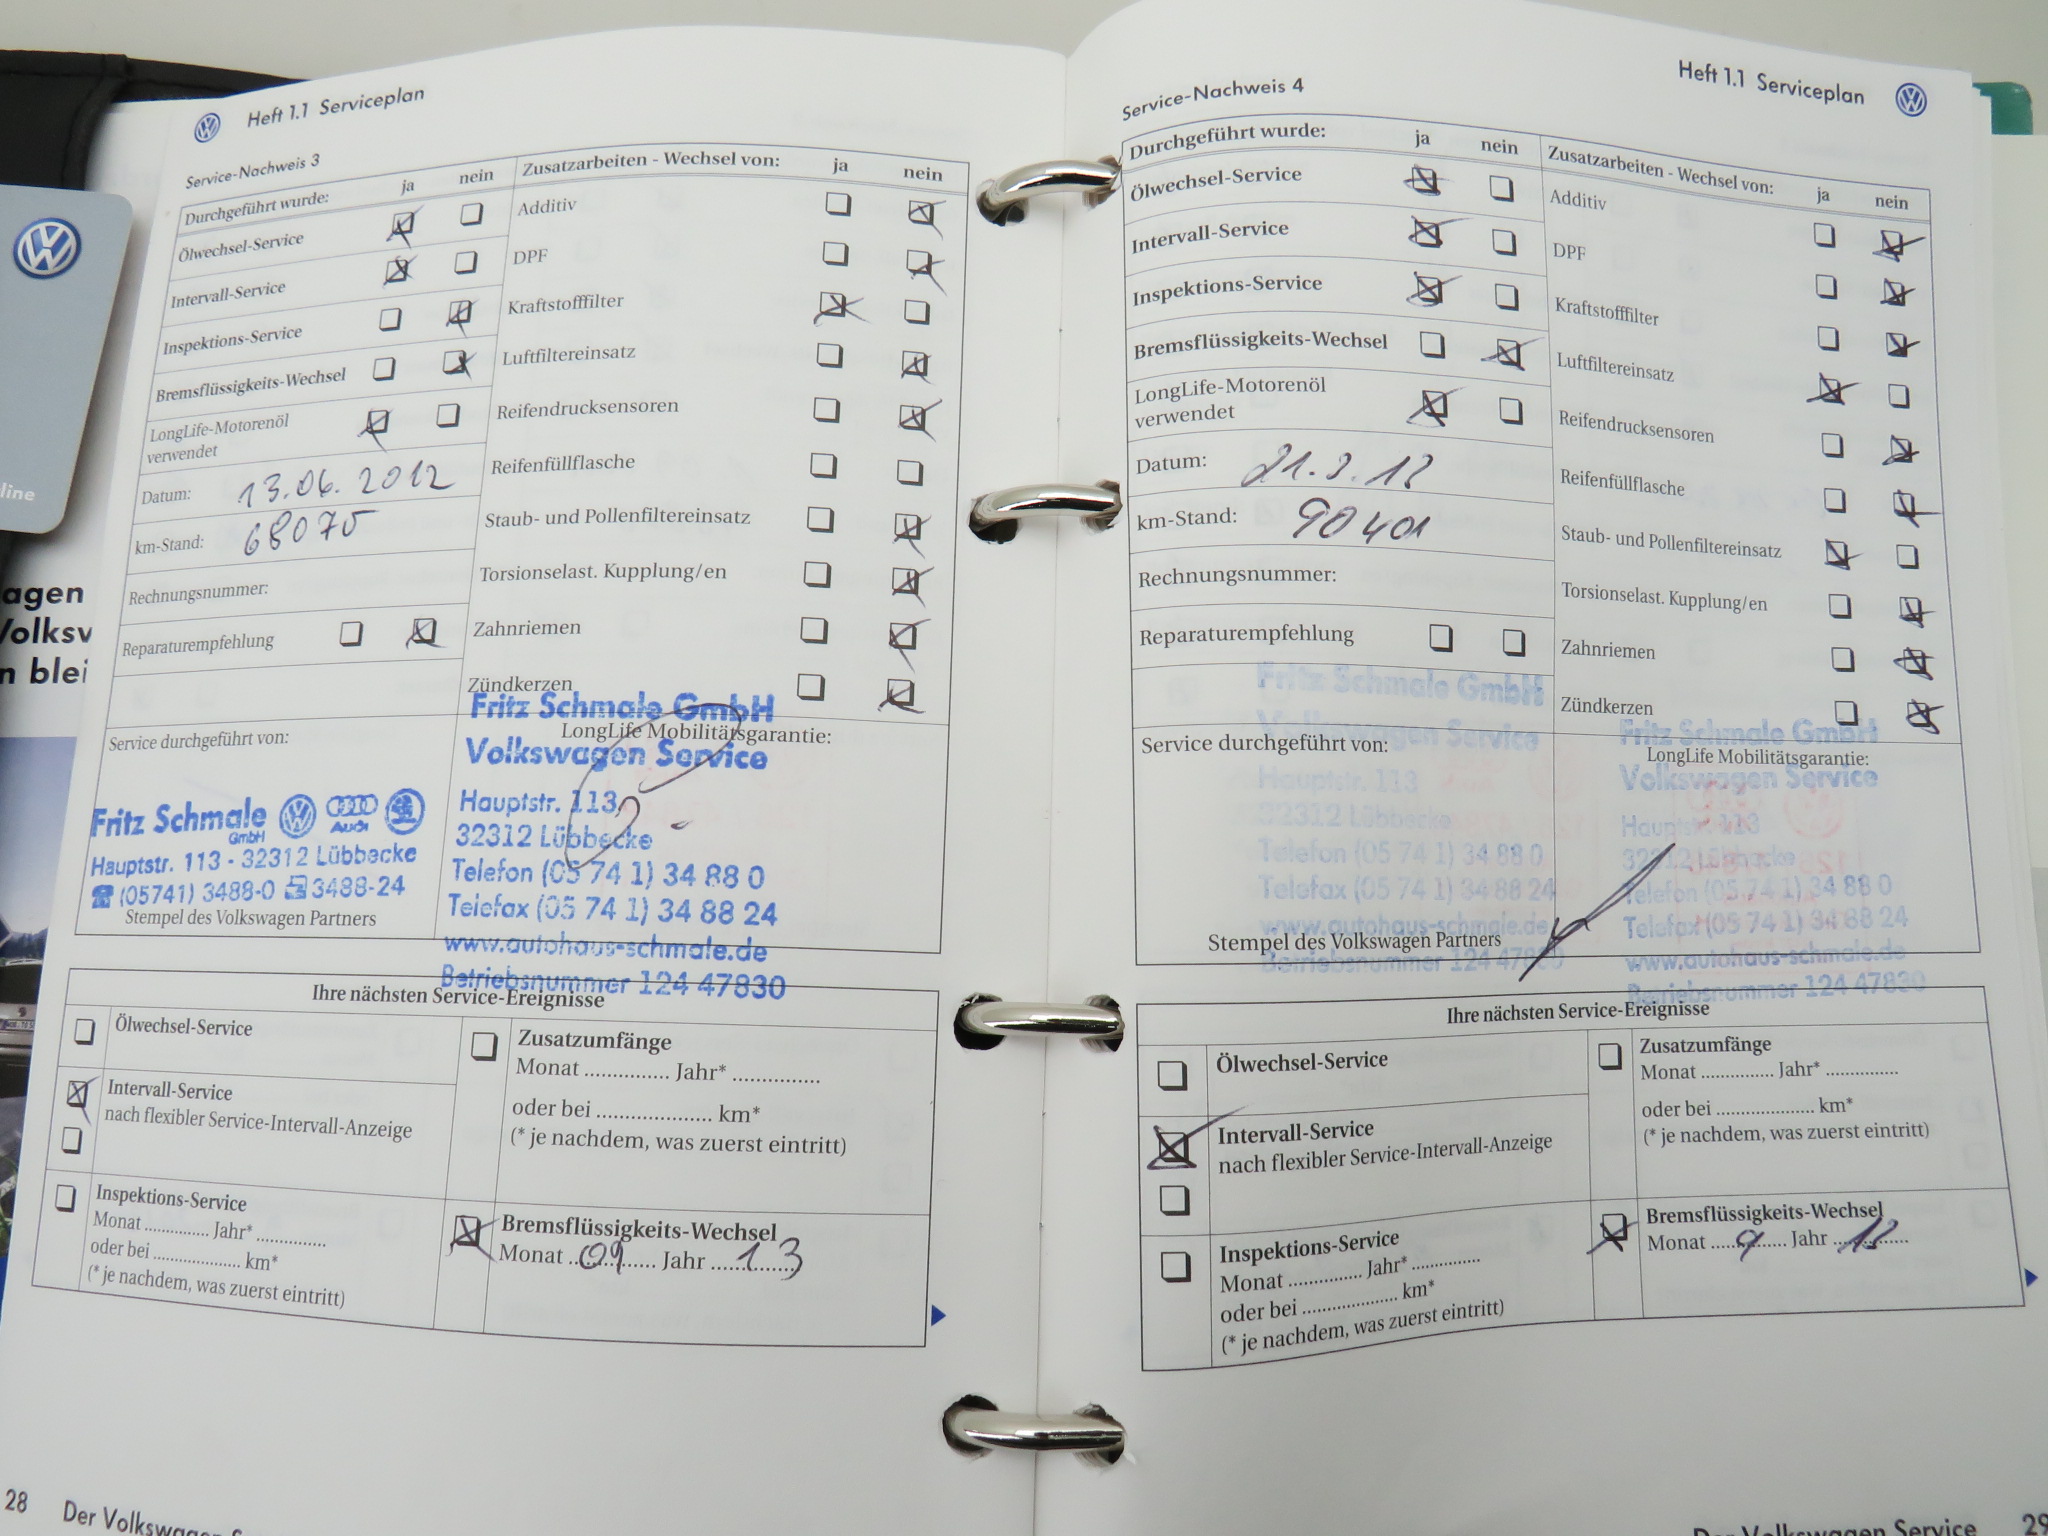 Heft 1.1 Serviceplan
Service-Nachweis 3
Durchgeführt wurde: ja nein
Ölwechsel-Service
Intervall-Service
Inspektions-Service
Bremsflüssigkeits-Wechsel
LongLife-Motorenöl
verwendet
Datum: 13.06.2012
km-Stand: 68075
Rechnungsnummer:
Reparaturempfehlung
Zusatzarbeiten - Wechsel von: ja nein
Additiv
DPF
Kraftstofffilter
Luftfiltereinsatz
Reifendrucksensoren
Reifenfüllflasche
Staub- und Pollenfiltereinsatz
Torsionselast. Kupplung/en
Zahnriemen
Zündkerzen
Service durchgeführt von:
Fritz Schmale
GmbH
Audi
Hauptstr. 113 - 32312 Lübbecke
(05741) 3488-0 3488-24
Stempel des Volkswagen Partners
Fritz Schmale GmbH
LongLife Mobilitätsgarantie:
Volkswagen Service
Hauptstr. 113
32312 Lübbecke
Telefon (05 74 1) 34 88 0
Telefax (05 74 1) 34 88 24
www.autohaus-schmale.de
Betriebsnummer 124 47830
Ihre nächsten Service-Ereignisse
Ölwechsel-Service
Intervall-Service
nach flexibler Service-Intervall-Anzeige
Inspektions-Service
Monat .............. Jahr* ..............
oder bei .................... km*
(* je nachdem, was zuerst eintritt)
Zusatzumfänge
Monat .............. Jahr* ..............
oder bei .................... km*
(* je nachdem, was zuerst eintritt)
Bremsflüssigkeits-Wechsel
Monat 09 Jahr 13
28 Der Volkswagen
Heft 1.1 Serviceplan
Service-Nachweis 4
Durchgeführt wurde: ja nein
Ölwechsel-Service
Intervall-Service
Inspektions-Service
Bremsflüssigkeits-Wechsel
LongLife-Motorenöl
verwendet
Datum:
km-Stand:
Rechnungsnummer:
Reparaturempfehlung
Zusatzarbeiten - Wechsel von: ja nein
Additiv
DPF
Kraftstofffilter
Luftfiltereinsatz
Reifendrucksensoren
Reifenfüllflasche
Staub- und Pollenfiltereinsatz
Torsionselast. Kupplung/en
Zahnriemen
Zündkerzen
Fritz Schmale GmbH
Volkswagen Service
Service durchgeführt von:
Hauptstr. 113
32312 Lübbecke
Telefon (05 74 1) 34 88 0
Telefax (05 74 1) 34 88 24
www.autohaus-schmale.de
Stempel des Volkswagen Partners
Betriebsnummer 124 47830
Fritz Schmale GmbH
LongLife Mobilitätsgarantie:
Volkswagen Service
Hauptstr. 113
32312 Lübbecke
Telefon (05 74 1) 34 88 0
Telefax (05 74 1) 34 88 24
www.autohaus-schmale.de
Betriebsnummer 124 47830
Ihre nächsten Service-Ereignisse
Ölwechsel-Service
Intervall-Service
nach flexibler Service-Intervall-Anzeige
Inspektions-Service
Monat .............. Jahr* ..............
oder bei .................... km*
(* je nachdem, was zuerst eintritt)
Zusatzumfänge
Monat .............. Jahr* ..............
oder bei .................... km*
(* je nachdem, was zuerst eintritt)
Bremsflüssigkeits-Wechsel
Monat 9 Jahr
Der Volkswagen Service 29